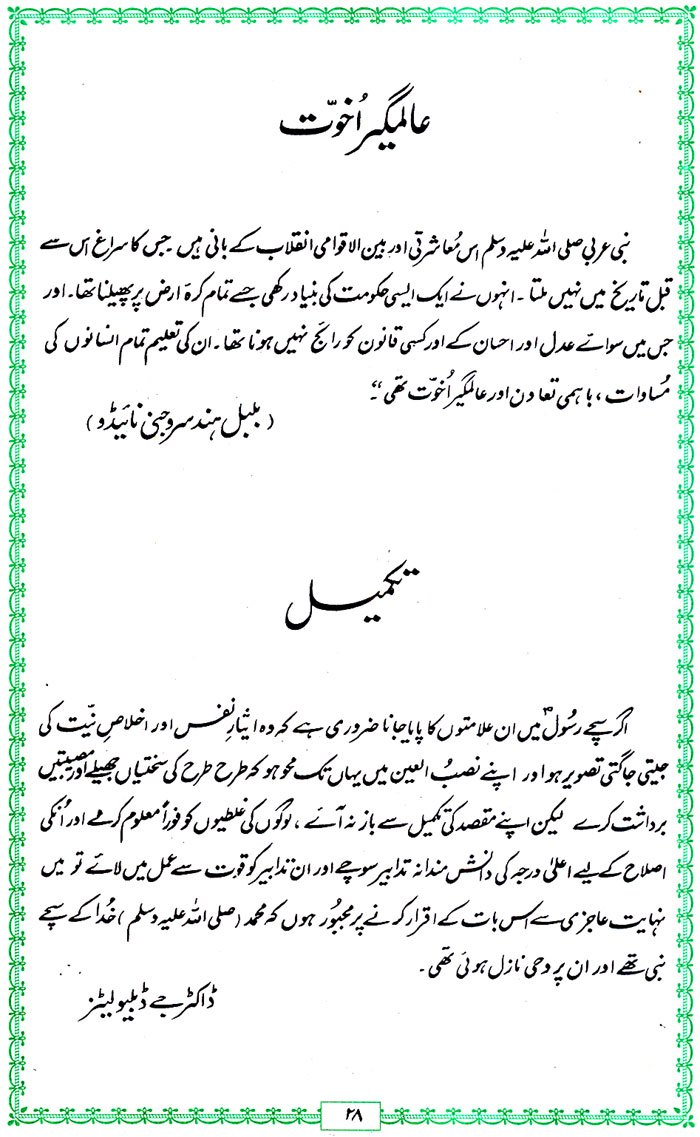 عالمگیر اُخوّت
نبی عربی صلی اللہ علیہ وسلم اس مُعاشرتی اور بین الاقوامی انقلاب کے بانی ہیں جس کا سراغ اس سے
قبل تاریخ میں نہیں ملتا ۔ انہوں نے ایک ایسی حکومت کی بنیاد رکھی جسے تمام کرہ ارض پر پھیلنا تھا ۔ اور
جس میں سوائے عدل اور احسان کے اور کسی قانون کو رائج نہیں ہونا تھا ۔ ان کی تعلیم تمام انسانوں کی
مُساوات ، باہمی تعاون اور عالمگیر اُخوّت تھی“۔
( بلبل ہند سروجنی نائیڈو )
تکمیل
اگر سچے رسُولؐ میں ان علامتوں کا پایا جانا ضروری ہے کہ وہ ایثارِ نفس اور اخلاصِ نیّت کی
جیتی جاگتی تصویر ہو اور اپنے نصبُ العین میں یہاں تک محو ہو کہ طرح طرح کی سختیاں جھیلے اور مصیبتیں
برداشت کرے لیکن اپنے مقصد کی تکمیل سے باز نہ آئے ، لوگوں کی غلطیوں کو فوراً معلوم کرے اور اُنکی
اصلاح کے لیے اعلیٰ درجہ کی دانش مندانہ تدابیر سوچے اور ان تدابیر کو قوت سے عمل میں لائے تو میں
نہایت عاجزی سے اس بات کے اقرار کرنے پر مجبُور ہوں کہ محمد (صلی اللہ علیہ وسلم) خُدا کے سچے
نبی تھے اور ان پر وحی نازل ہوئی تھی ۔
ڈاکٹر جے ڈبلیو لیٹز
۲۸